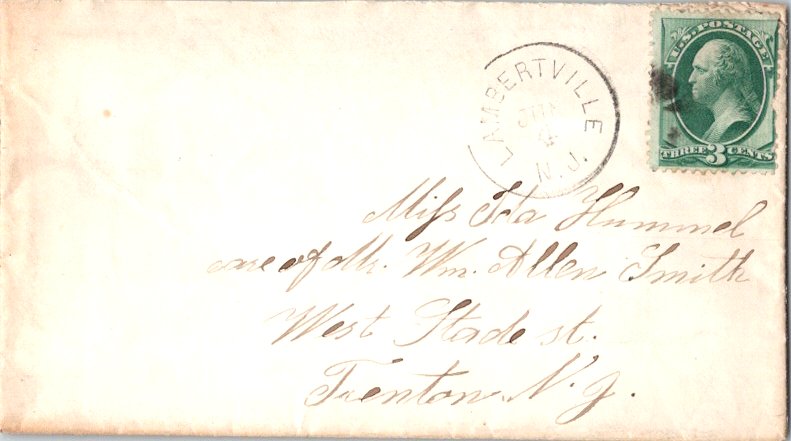 U.S. POSTAGE
THREE 3 CENTS
LAMBERTVILLE
N.J.
Miſs Ida Hummel
care of Mr. Wm. Allen Smith
West Stade st.
Trenton N. J.